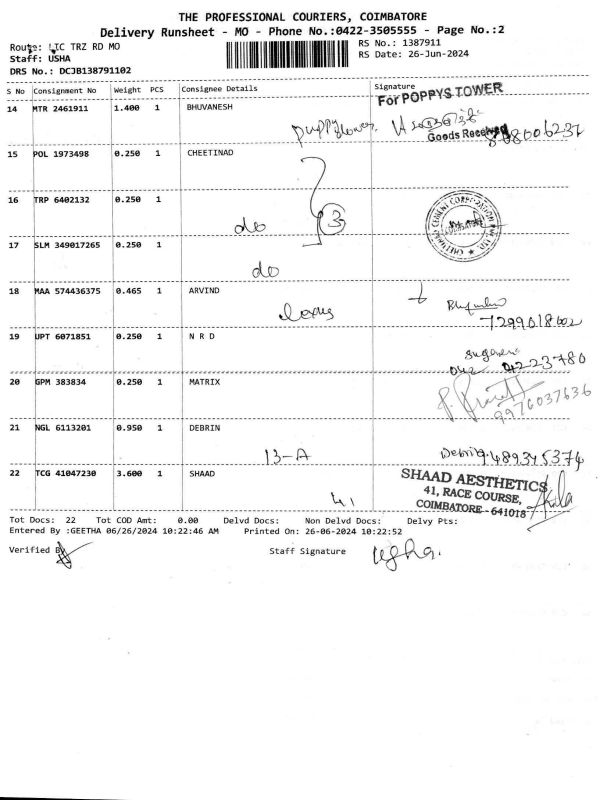 THE PROFESSIONAL COURIERS, COIMBATORE
Delivery Runsheet - MO - Phone No.:0422-3505555 - Page No.:2
Route: LIC TRZ RD MO
RS No.: 1387911
Staff: USHA
RS Date: 26-Jun-2024
DRS No.: DCJB138791102
S No Consignment No Weight PCS Consignee Details Signature
For POPPYS TOWER
14 MTR 2461911 1.400 1 BHUVANESH
Goods Received
15 POL 1973498 0.250 1 CHEETINAD
16 TRP 6402132 0.250 1
do 3
17 SLM 349017265 0.250 1
do
18 MAA 574436375 0.465 1 ARVIND
lexus
7299018002
19 UPT 6071851 0.250 1 N R D
0422 4223780
20 GPM 383834 0.250 1 MATRIX
9976037636
21 NGL 6113201 0.950 1 DEBRIN
13-A Debrin 9489345374
22 TCG 41047230 3.600 1 SHAAD
41
SHAAD AESTHETICS
41, RACE COURSE,
COIMBATORE - 641018
Tot Docs: 22 Tot COD Amt: 0.00 Delvd Docs: Non Delvd Docs: Delvy Pts:
Entered By :GEETHA 06/26/2024 10:22:46 AM Printed On: 26-06-2024 10:22:52
Verified By
Staff Signature usha.